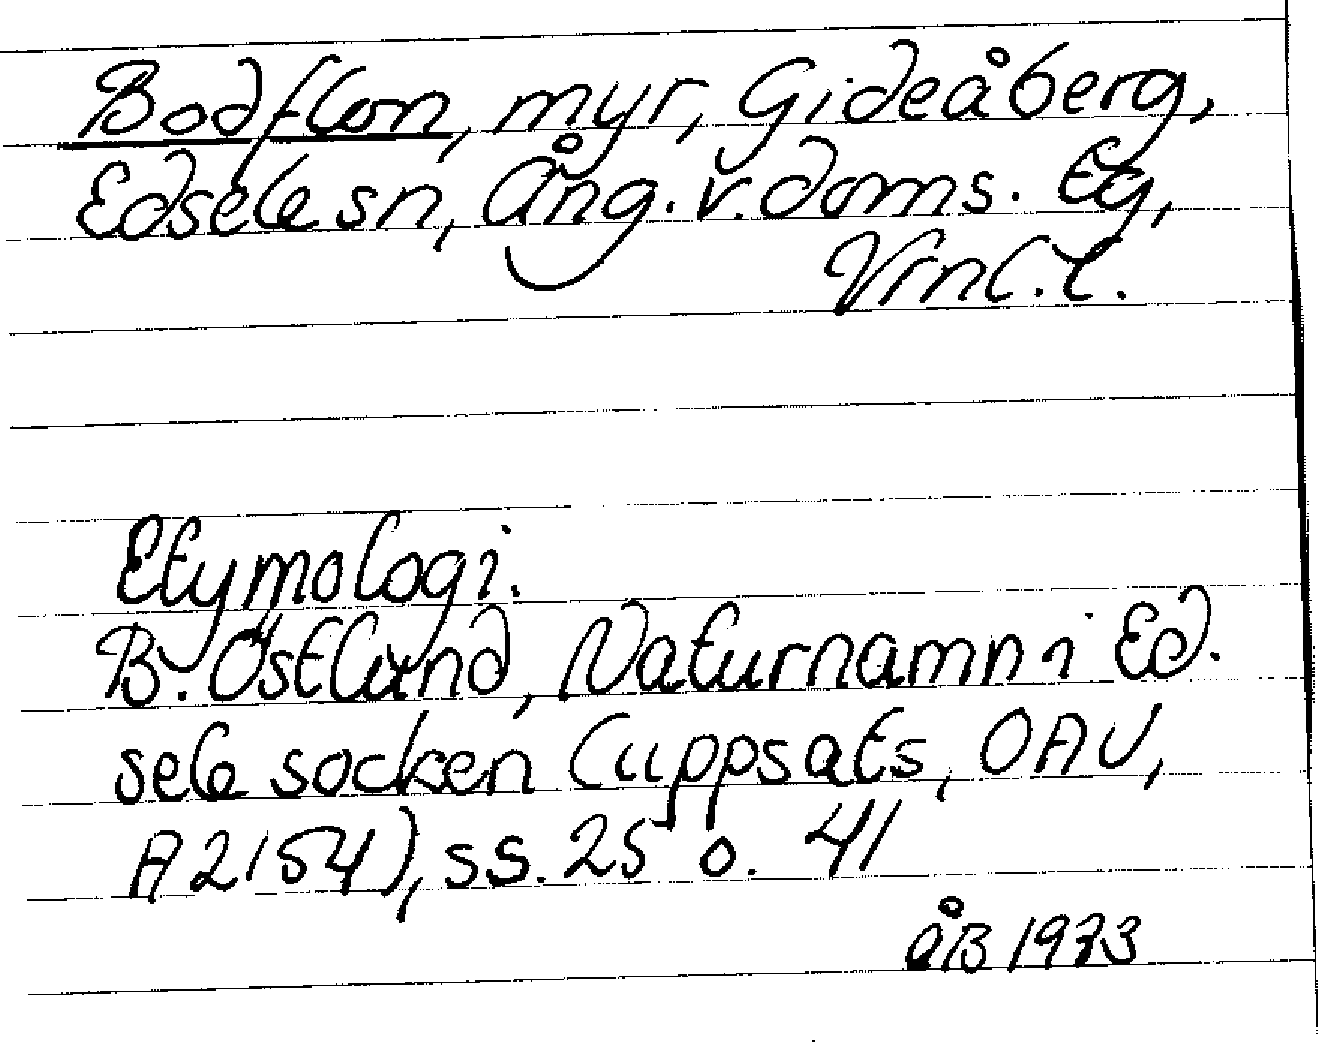 Bodflon, myr, Gideåberg,
Edsele sn, Ång. v. doms. Eg,
Vrnl. l.
Etymologi.
B. Östlund, Naturnamn i Ed.
sele socken (uppsats, OAU,
A2154), ss. 25 o. 41
åB 1973